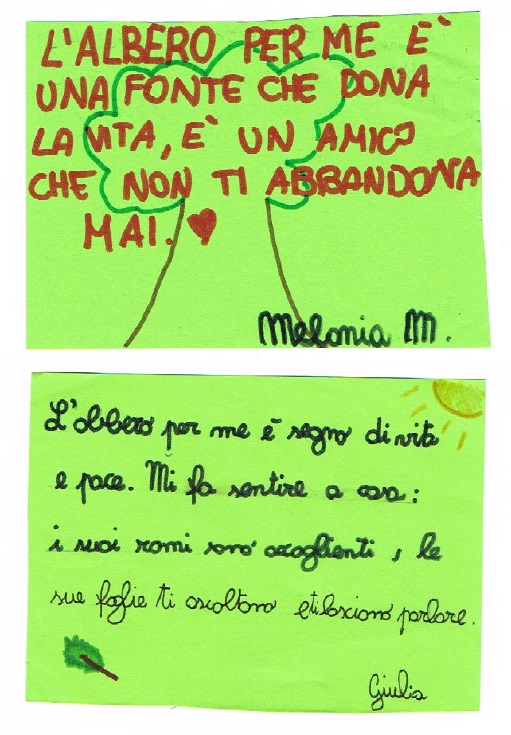 L'ALBERO PER ME È
UNA FONTE CHE DONA
LA VITA, E' UN AMICO
CHE NON TI ABBANDONA
MAI.
Melonia M.
L'albero per me è segno di vita
e pace. Mi fa sentire a casa:
i suoi rami sono accoglienti, le
sue foglie ti ascoltano e ti lasciano parlare.
Giulia